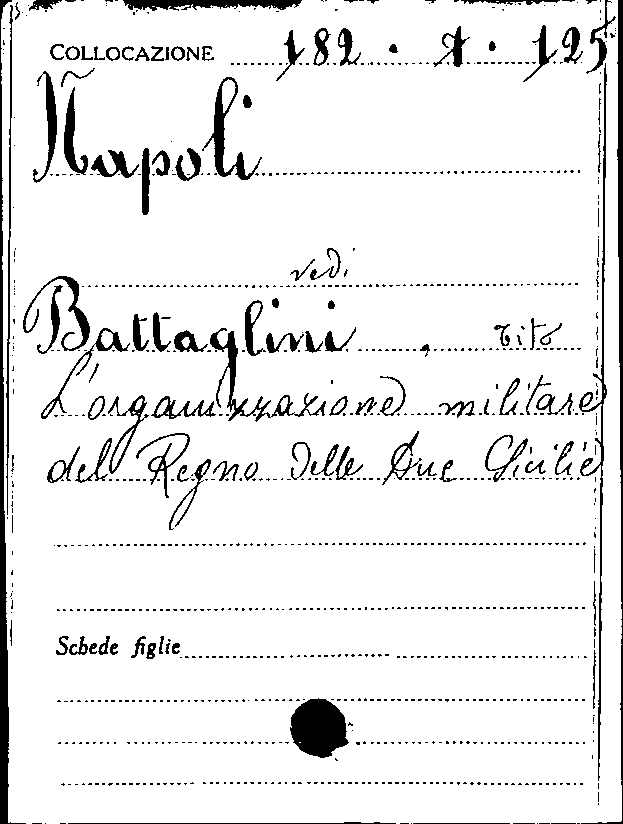 COLLOCAZIONE 182 . 1 . 125
Napoli
vedi
Battaglini , Tito
L'organizzazione militare
del Regno delle Due Sicilie
Schede figlie